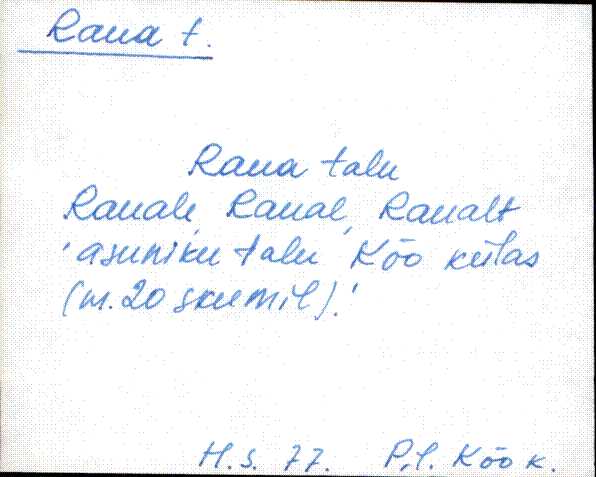 Raua t.
Raua talu
Rauale, Raual, Raualt
'asuniku talu Kõo külas
(m. 20
H.s. 77. P.I. Kõo k.